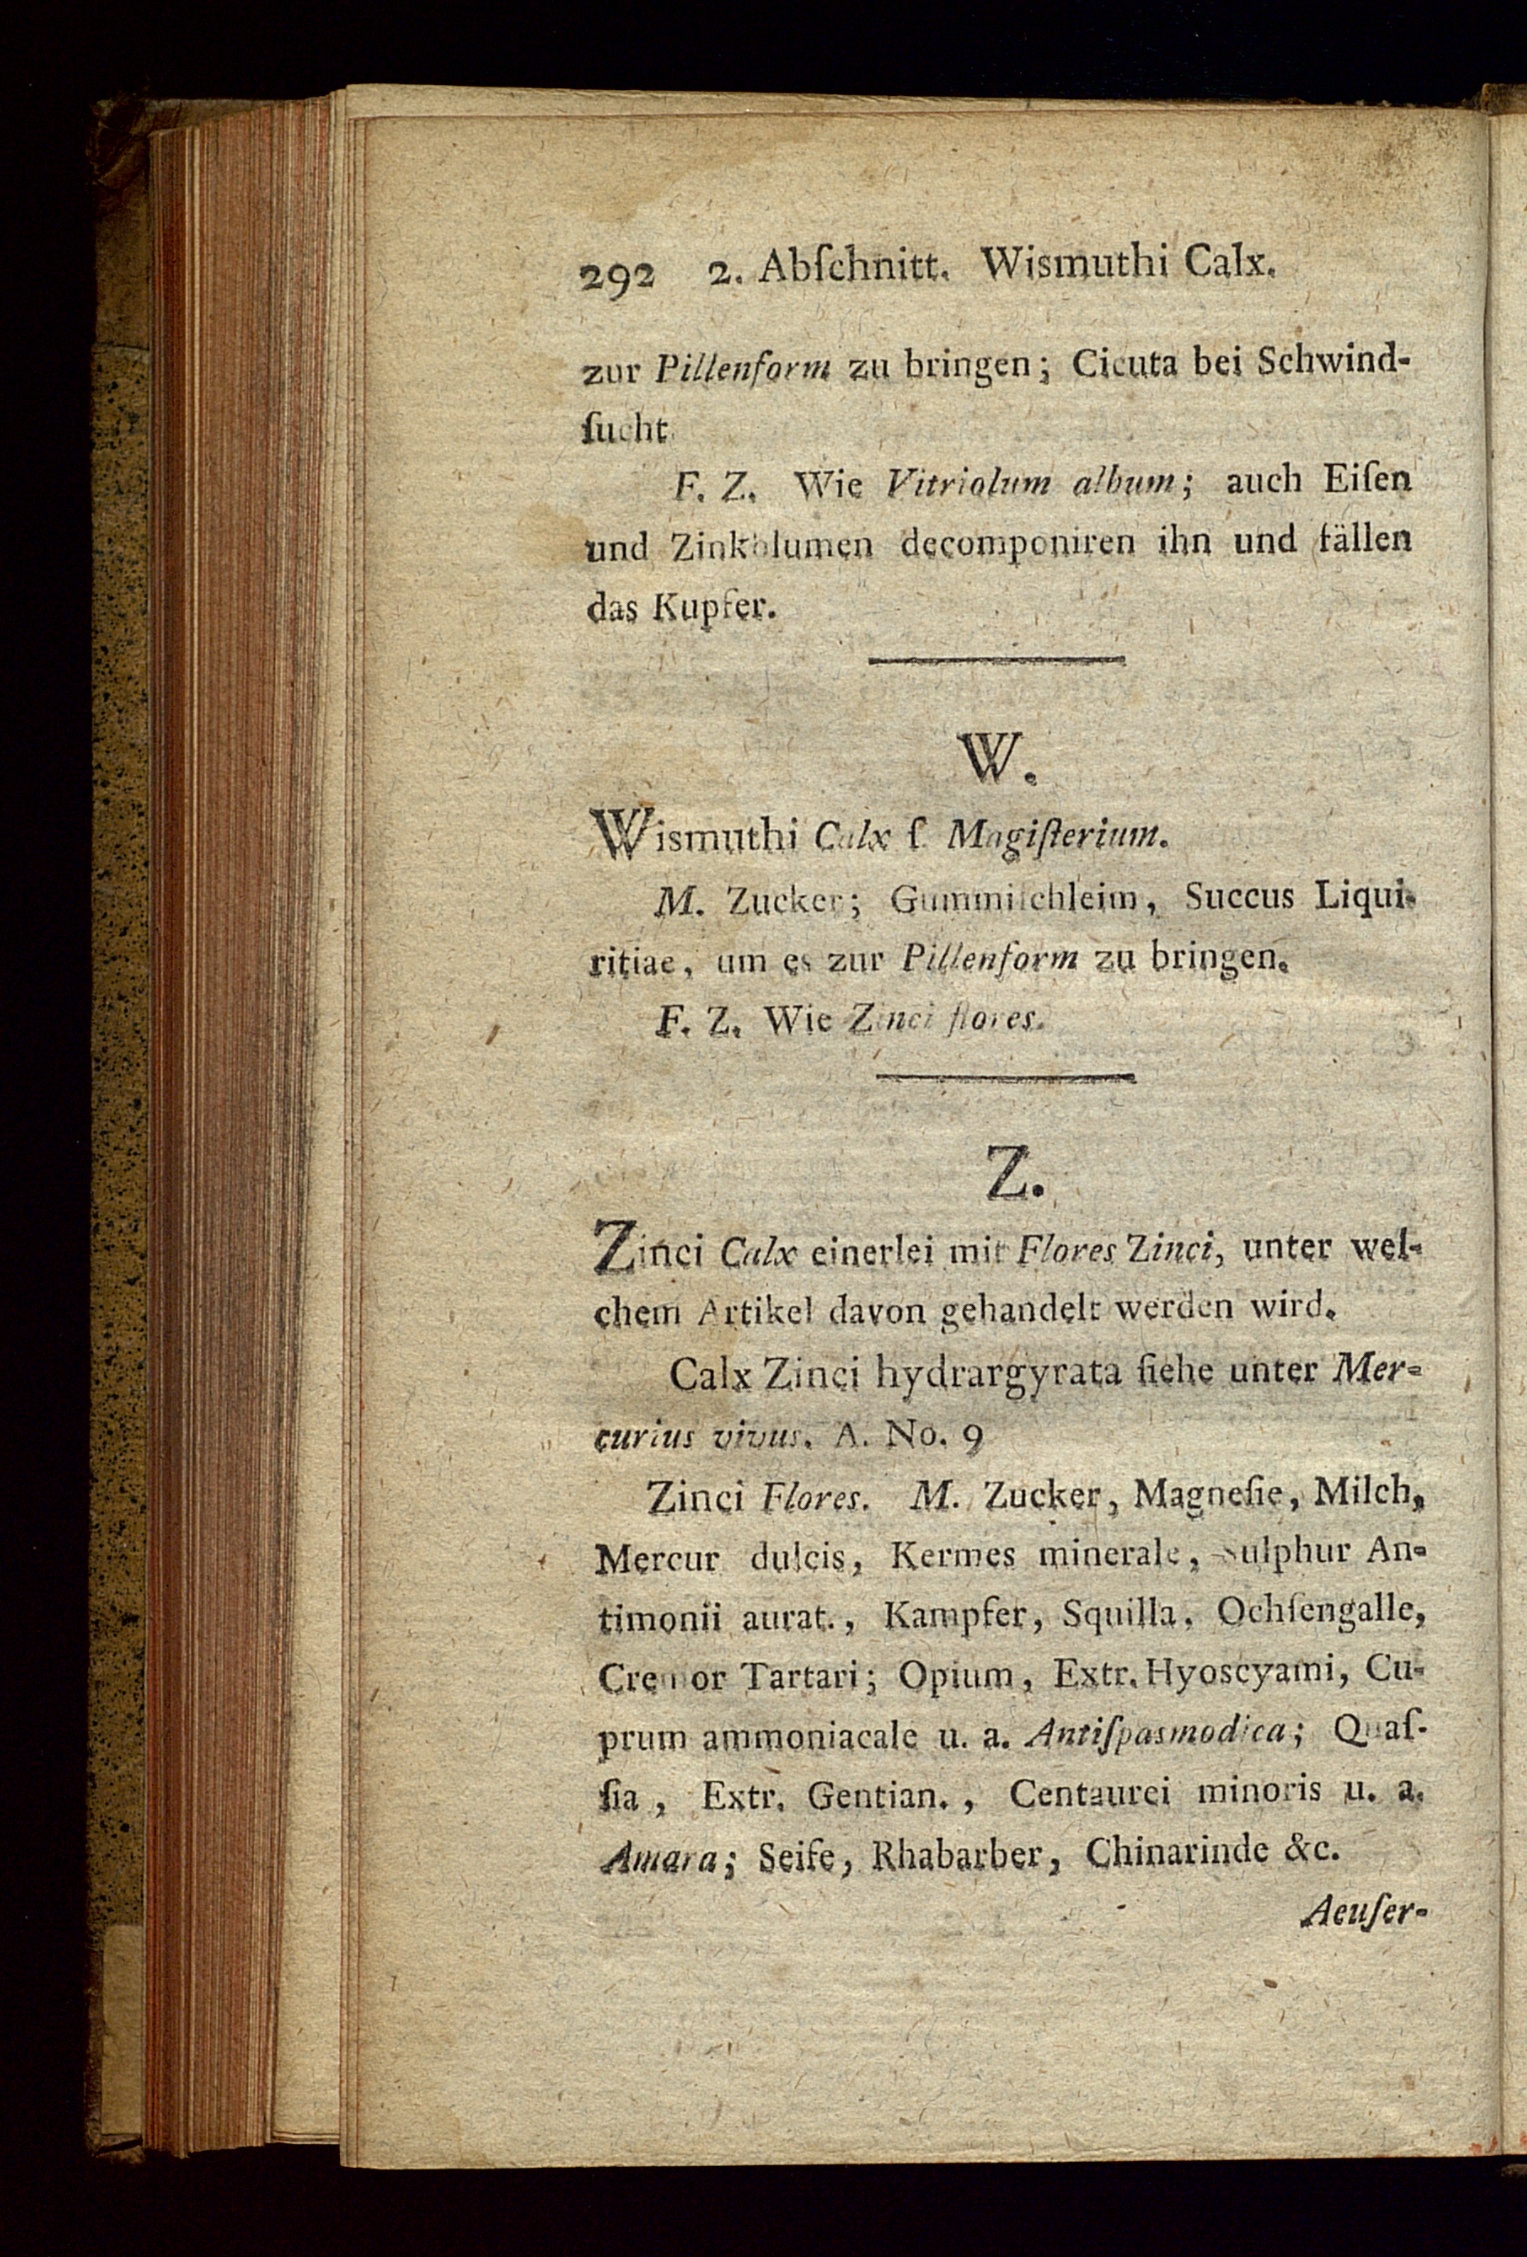 292 2. Abſchnitt. Wismuthi Calx.
zur Pillenform zu bringen; Cicuta bei Schwind-
ſucht
F. Z. Wie Vitriolum album; auch Eiſen
und Zinkblumen decomponiren ihn und fällen
das Kupfer.
W.
Wismuthi Calx ſ. Magiſterium.
M. Zucker; Gummiſchleim, Succus Liqui-
ritiae, um es zur Pillenform zu bringen.
F. Z. Wie Zinci flores.
Z.
Zinci Calx einerlei mit Flores Zinci, unter wel-
chem Artikel davon gehandelt werden wird.
Calx Zinci hydrargyrata ſiehe unter Mer-
curius vivus. A. No. 9
Zinci Flores. M. Zucker, Magneſie, Milch,
Mercur dulcis, Kermes minerale, Sulphur An-
timonii aurat., Kampfer, Squilla, Ochſengalle,
Cremor Tartari; Opium, Extr. Hyoscyami, Cu-
prum ammoniacale u. a. Antiſpasmodica; Quaſ-
ſia, Extr. Gentian., Centaurei minoris u. a.
Amara; Seife, Rhabarber, Chinarinde &c.
Aeuſer-